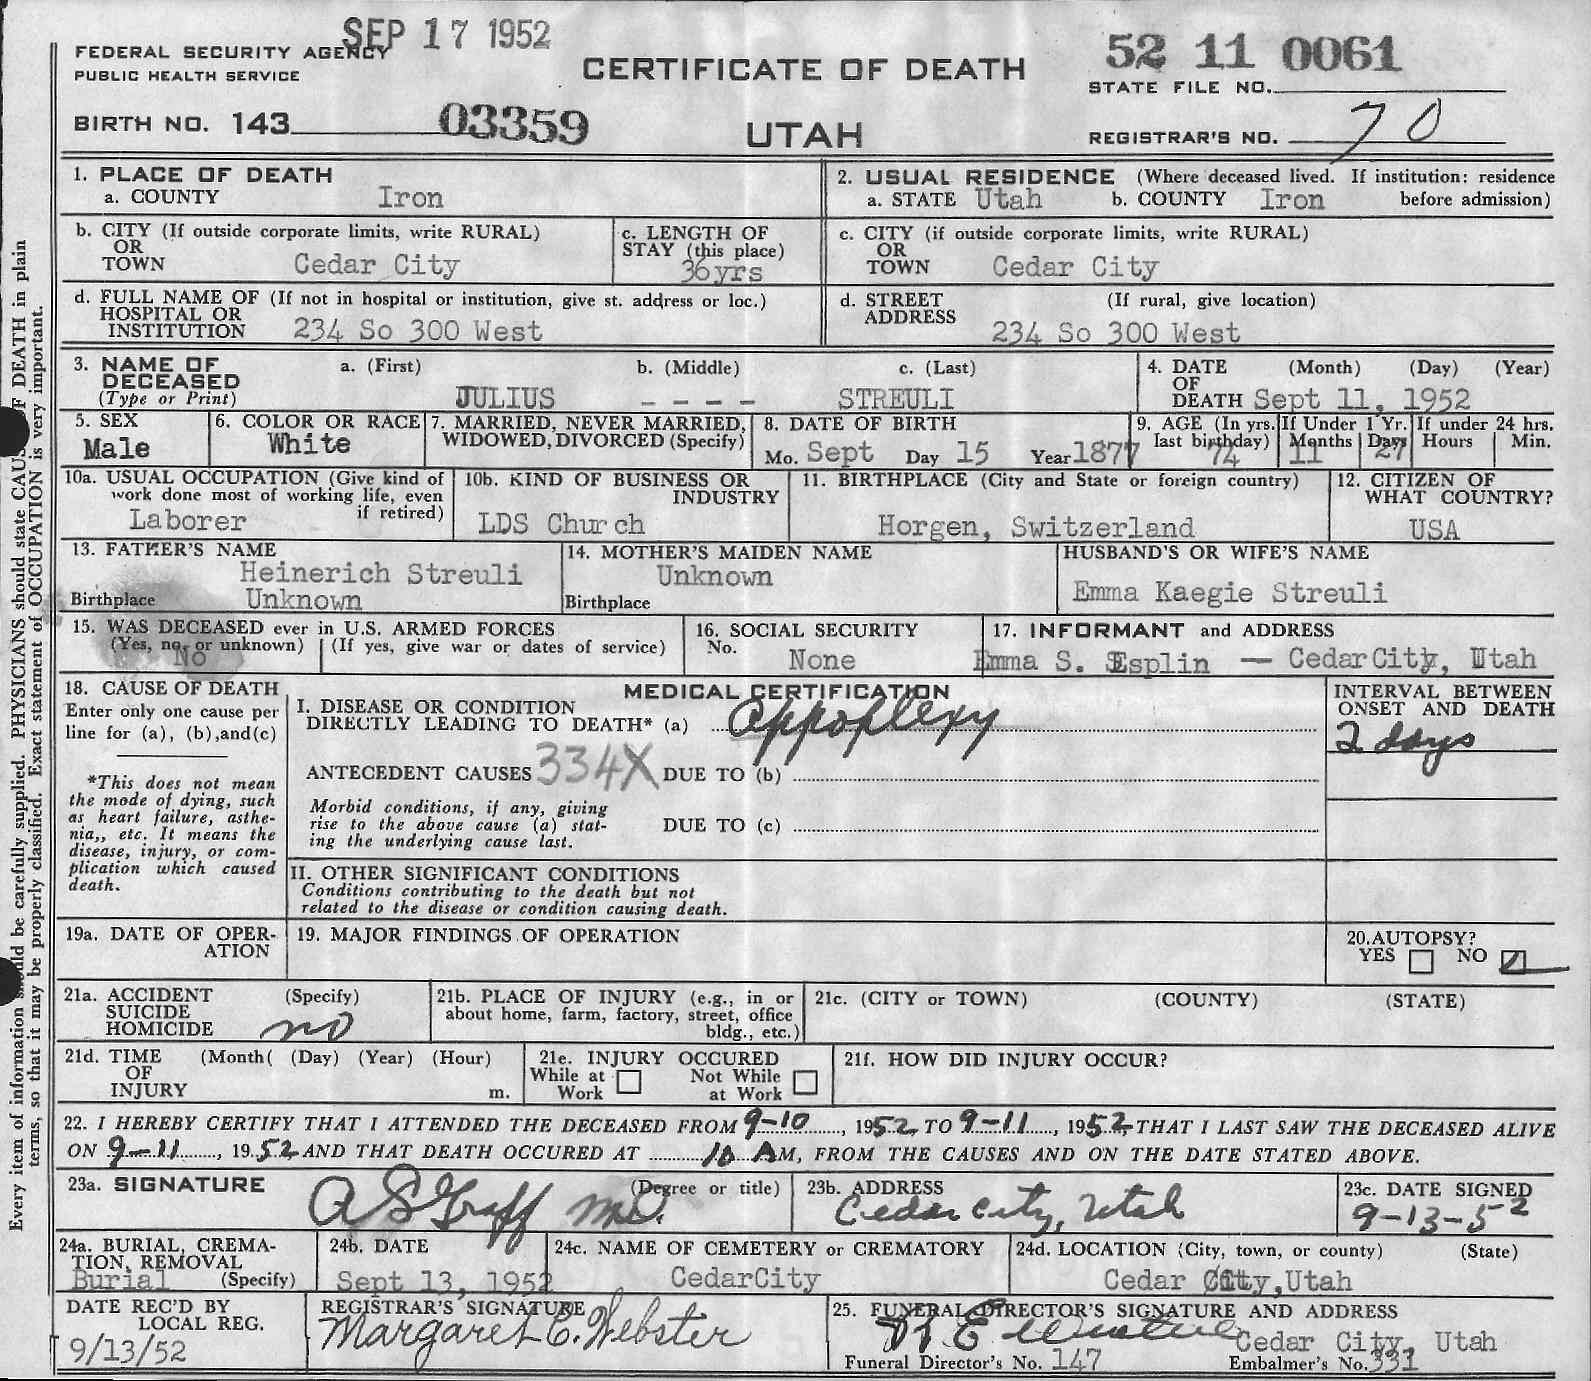 SEP 17 1952
FEDERAL SECURITY AGENCY
PUBLIC HEALTH SERVICE
CERTIFICATE OF DEATH
52 11 0061
STATE FILE NO.
BIRTH NO. 143 03359
UTAH
REGISTRAR'S NO. 70
1. PLACE OF DEATH
a. COUNTY Iron
2. USUAL RESIDENCE (Where deceased lived. If institution: residence
a. STATE Utah b. COUNTY Iron before admission)
b. CITY (If outside corporate limits, write RURAL)
OR
TOWN Cedar City
c. LENGTH OF
STAY (this place)
36yrs
c. CITY (if outside corporate limits, write RURAL)
OR
TOWN Cedar City
d. FULL NAME OF (If not in hospital or institution, give st. address or loc.)
HOSPITAL OR
INSTITUTION 234 So 300 West
d. STREET (If rural, give location)
ADDRESS
234 So 300 West
3. NAME OF
DECEASED
(Type or Print)
a. (First) b. (Middle) c. (Last)
JULIUS - - - - STREULI
4. DATE (Month) (Day) (Year)
OF
DEATH Sept 11, 1952
5. SEX
Male
6. COLOR OR RACE
White
7. MARRIED, NEVER MARRIED,
WIDOWED, DIVORCED (Specify)
8. DATE OF BIRTH
Mo. Sept Day 15 Year 1877
9. AGE (In yrs.
last birthday)
74
If Under 1 Yr.
Months Days
11 27
If under 24 hrs.
Hours Min.
10a. USUAL OCCUPATION (Give kind of
work done most of working life, even
if retired)
Laborer
10b. KIND OF BUSINESS OR
INDUSTRY
LDS Church
11. BIRTHPLACE (City and State or foreign country)
Horgen, Switzerland
12. CITIZEN OF
WHAT COUNTRY?
USA
13. FATHER'S NAME
Heinerich Streuli
Birthplace Unknown
14. MOTHER'S MAIDEN NAME
Unknown
Birthplace
HUSBAND'S OR WIFE'S NAME
Emma Kaegie Streuli
15. WAS DECEASED ever in U.S. ARMED FORCES
(Yes, no, or unknown) (If yes, give war or dates of service)
No
16. SOCIAL SECURITY
No.
None
17. INFORMANT and ADDRESS
Emma S. Esplin — CedarCity, Utah
18. CAUSE OF DEATH
Enter only one cause per
line for (a), (b),and(c)
*This does not mean
the mode of dying, such
as heart failure, asthe-
nia,, etc. It means the
disease, injury, or com-
plication which caused
death.
MEDICAL CERTIFICATION
I. DISEASE OR CONDITION
DIRECTLY LEADING TO DEATH* (a) Appoplexy
ANTECEDENT CAUSES 334X DUE TO (b)
Morbid conditions, if any, giving
rise to the above cause (a) stat-
ing the underlying cause last.
DUE TO (c)
II. OTHER SIGNIFICANT CONDITIONS
Conditions contributing to the death but not
related to the disease or condition causing death.
INTERVAL BETWEEN
ONSET AND DEATH
2 days
19a. DATE OF OPER-
ATION
19. MAJOR FINDINGS OF OPERATION
20.AUTOPSY?
YES NO
21a. ACCIDENT (Specify)
SUICIDE
HOMICIDE no
21b. PLACE OF INJURY (e.g., in or
about home, farm, factory, street, office
bldg., etc.)
21c. (CITY or TOWN) (COUNTY) (STATE)
21d. TIME (Month( (Day) (Year) (Hour)
OF
INJURY m.
21e. INJURY OCCURED
While at Not While
Work at Work
21f. HOW DID INJURY OCCUR?
22. I HEREBY CERTIFY THAT I ATTENDED THE DECEASED FROM 9-10, 1952, TO 9-11, 1952, THAT I LAST SAW THE DECEASED ALIVE
ON 9-11, 1952 AND THAT DEATH OCCURED AT 10 AM, FROM THE CAUSES AND ON THE DATE STATED ABOVE.
23a. SIGNATURE (Degree or title)
A S Graff M.D.
23b. ADDRESS
Cedar City, Utah
23c. DATE SIGNED
9-13-52
24a. BURIAL, CREMA-
TION, REMOVAL
Burial (Specify)
24b. DATE
Sept 13, 1952
24c. NAME OF CEMETERY or CREMATORY
CedarCity
24d. LOCATION (City, town, or county) (State)
Cedar City,Utah
DATE REC'D BY
LOCAL REG.
9/13/52
REGISTRAR'S SIGNATURE
Margaret C. Webster
25. FUNERAL DIRECTOR'S SIGNATURE AND ADDRESS
Cedar City, Utah
Funeral Director's No. 147 Embalmer's No. 331
Every item of information should be carefully supplied. PHYSICIANS should state CAUSE OF DEATH in plain
terms, so that it may be properly classified. Exact statement of OCCUPATION is very important.